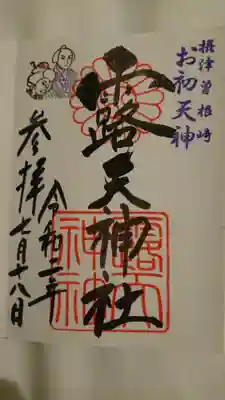 摂津曽根崎
お初天神
露天神社
令和二年
七月十八日
参拝